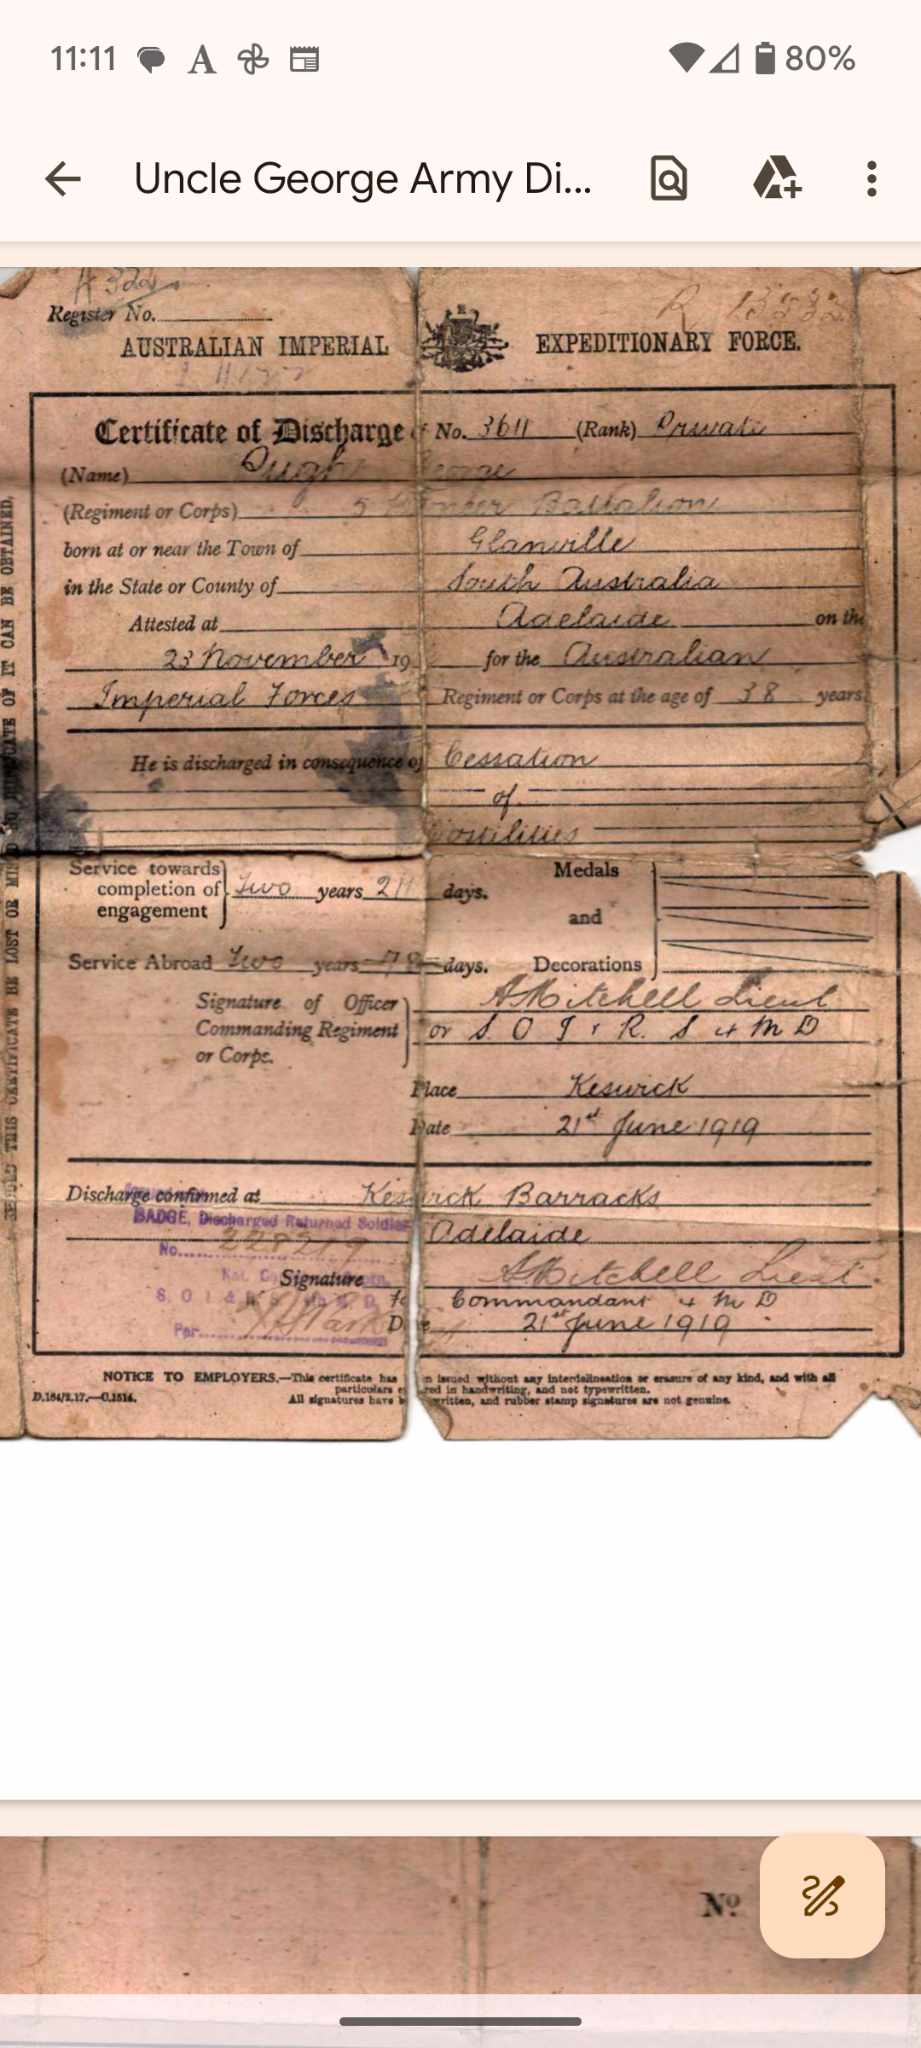 11:11
80%
Uncle George Army Di...
Register No.
AUSTRALIAN IMPERIAL EXPEDITIONARY FORCE.
Certificate of Discharge No. 3611 (Rank) Private
(Name) Pugh George
(Regiment or Corps) 5 Battalion
born at or near the Town of Glanville
in the State or County of South Australia
Attested at Adelaide on the
23 November 19 for the Australian
Imperial Forces Regiment or Corps at the age of 38 years
He is discharged in consequence of Cessation
of
Hostilities
Service towards completion of engagement Two years 211 days.
Medals and Decorations
Service Abroad Two years days.
Signature of Officer Commanding Regiment or Corps. AMitchell Lieut
or S O I & R. S 4 M D
Place Keswick
Date 21st June 1919
Discharge confirmed at Keswick Barracks
BADGE, Discharged Returned Soldier
Adelaide
No. 228219
Signature AMitchell Lieut
Commandant 4 M D
Per
21st June 1919
NOTICE TO EMPLOYERS.—This certificate has issued without any interdelineation or erasure of any kind, and with all
particulars in handwriting, and not typewritten.
D.184/2.17.—C.1514.
All signatures have written, and rubber stamp signatures are not genuine.
SHOULD THIS CERTIFICATE BE LOST OR NO DUPLICATE OF IT CAN BE OBTAINED.
No